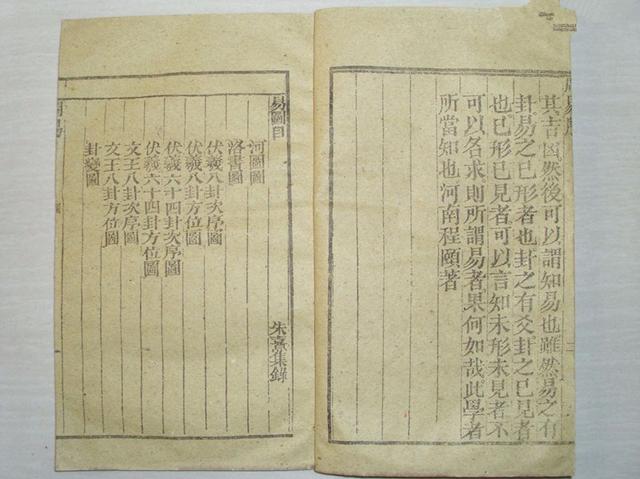 其吉凶然後可以謂知易也雖然易之有
卦易之已形者也卦之有爻卦之已見者
也已形已見者可以言知未形未見者不
可以名求則所謂易者果何如哉此學者
所當知也河南程頤著
易圖目 朱熹集錄
河圖圖
洛書圖
伏羲八卦次序圖
伏羲八卦方位圖
伏羲六十四卦次序圖
伏羲六十四卦方位圖
文王八卦次序圖
文王八卦方位圖
卦變圖